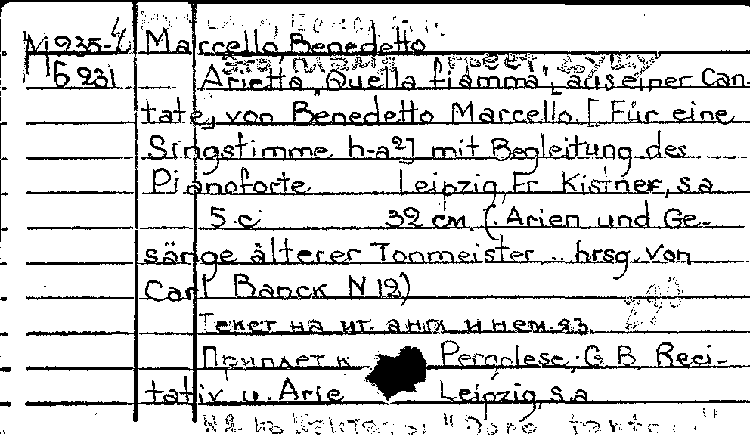 М 935-4 Marcello Benedetto
Б 931 Arietta „Quella fiamma", aus einer Can-
tate, von Benedetto Marcello. [Für eine
Singstimme h-a²] mit Begleitung des
Pianoforte Leipzig, Fr. Kistner, s.a.
5 с. 32 см. (Arien und Ge-
sänge älterer Tonmeister.. hrsg. von
Carl Banck N 12)
Текст на ит. англ. и нем. яз.
Приплет. к Pergolese, G.B. Reci-
tativ u. Arie Leipzig, s.a.